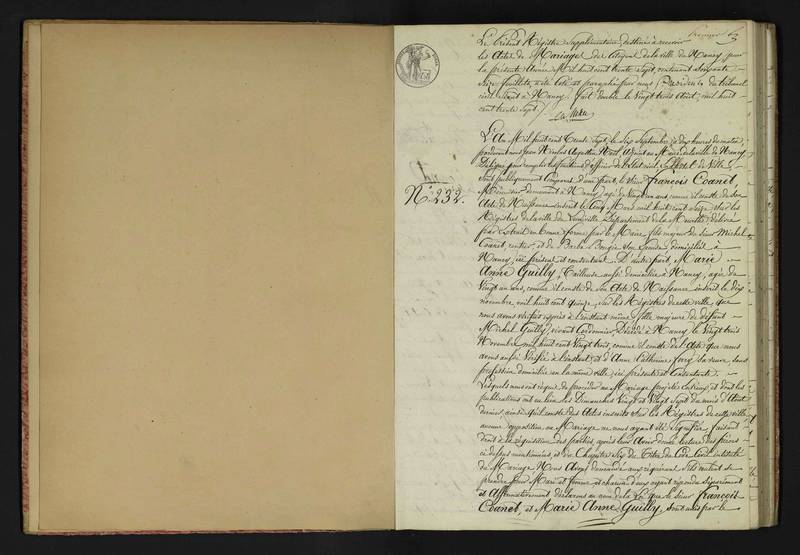 Premier 3
Le Présent Régistre Supplémentaire, destiné à recevoir
les Actes de Mariages des Citoyens de la ville de Nancy, pour
la présente Année Mil huit cent trente Sept, contenant
feuillets, a été Coté et paraphé par nous, Président du tribunal
civil séant à Nancy. fait double le Vingt trois Août, mil huit
cent trente Sept.
L'An Mil huit cent Trente Sept, le Six Septembre à dix heures du matin,
pardevant nous Jean Nicolas Augustin Adjoint au Maire de la ville de Nancy,
Délégué pour remplir les fonctions d'officier de l'Etat civil, en l'hôtel de Ville
Sont publiquement Comparus d'une part, le Sieur François Coanet,
N.° 232.
Menuisier, demeurant à Nancy, agé de Vingt un ans, comme il conste de Son
Acte de Naissance inscrit le Cinq Mars mil huit cent Seize Sur les
Régistres de la ville de Lunéville, Département de la Meurthe, délivré
par Extrait en bonne forme par le Maire, fils majeur de Sieur Michel
Coanet, rentier, et de Barbe Bougie Son Epouse domiciliés à
Nancy, ici présens et consentans. D'autre part, Marie
Anne Guilly, Tailleuse aussi domiciliée à Nancy, agée de
Vingt un ans, comme il conste de Son Acte de Naissance inscrit le Dix
novembre, mil huit cent quinze, Sur les Régistres de cette ville, que
nous avons vérifié à l'instant même, fille majeure de défunt
Michel Guilly, vivant Cordonnier, Décédé à Nancy, le Vingt trois
Novembre, mil huit cent Vingt trois, comme il conste de l'Acte que nous
avons aussi Vérifié à l'instant, et d'Anne Catherine Sa veuve Sans
profession domiciliée en la même ville, ici présente et Consentante.
Lesquels nous ont requis de procéder au Mariage projeté entr'eux, et dont les
publications ont eu lieu les Dimanches Vingt et Vingt Sept du mois d'Août
dernier, ainsi qu'il conste des Actes inscrits Sur les Régistres de cette ville,
aucune opposition au Mariage ne nous ayant été Signifiée, faisant
droit à la réquisition des parties, après leur Avoir donné lecture des pièces
ci dessus mentionnées, et du Chapitre Six du Titre du Code Civil intitulé
du Mariage Nous Avons demandé aux requérans S'ils veulent se
prendre pour Mari et femme, et chacun d'eux ayant répondu Séparément
et Affirmativement déclarons au nom de la Loi que le Sieur François
Coanet, et Marie Anne Guilly, Sont unis par le